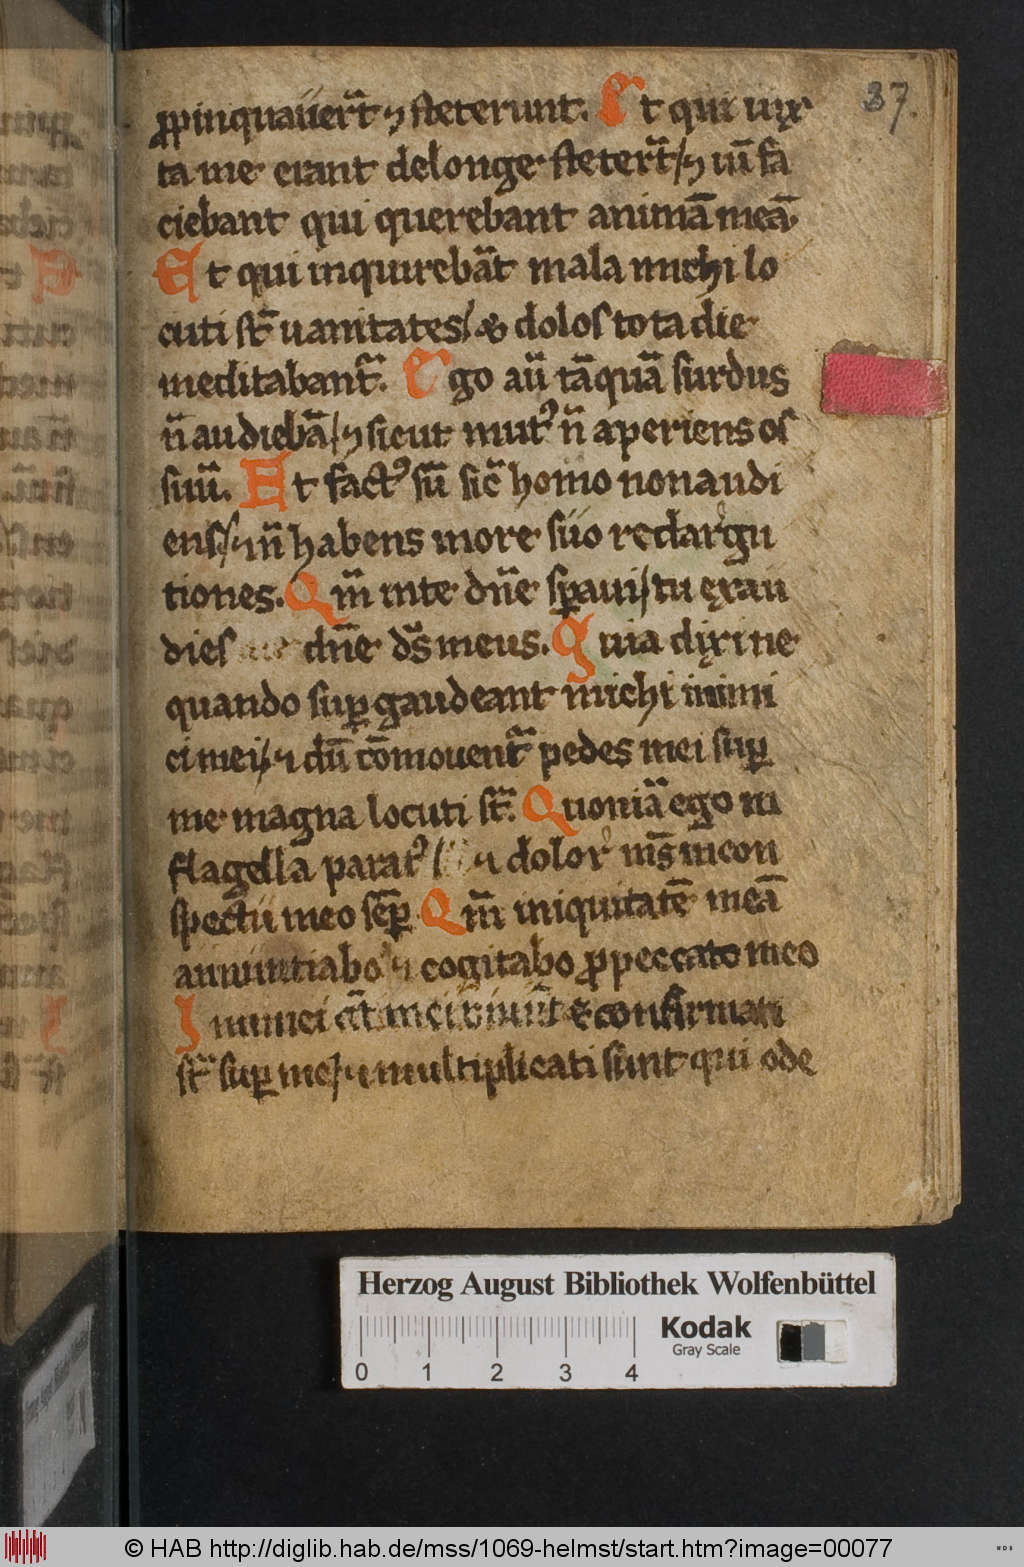 37.
ꝓpinquaueꝝt̄ ⁊ steterunt. Et qui iux
ta me erant delonge steter̄t / ⁊ uim̄ fa
ciebant qui querebant animā meā
Et qui inquirebāt mala michi lo
cuti st̄ uanitates / & dolos tota die
meditabant̄. Ego aū tāquā surdus
n̄ audiebā / ⁊ sicut mutꝰ n̄ aperiens os
suū. Et factꝰ sū sic̄ homo non audi
ens / ⁊ n̄ habens in ore suo redargu
tiones. Qm̄ in te dn̄e sꝑaui / tu exau
dies dn̄e ds̄ meus. Quia dixi ne
quando suꝑgaudeant michi inimi
ci mei / ⁊ dū cōmouent̄ pedes mei suꝑ
me magna locuti st̄. Quoniā ego in
flagella paratꝰ ⁊ dolor ms̄ in con
spectu meo seꝑ Qm̄ iniquitatē meā
annuntiabo ⁊ cogitabo ꝓ peccato meo
Inimici at̄ mei uiuūt & confirmati
st̄ suꝑ me / ⁊ multiplicati sunt qui ode
Herzog August Bibliothek Wolfenbüttel
Kodak
Gray Scale
0 1 2 3 4
© HAB http://diglib.hab.de/mss/1069-helmst/start.htm?image=00077